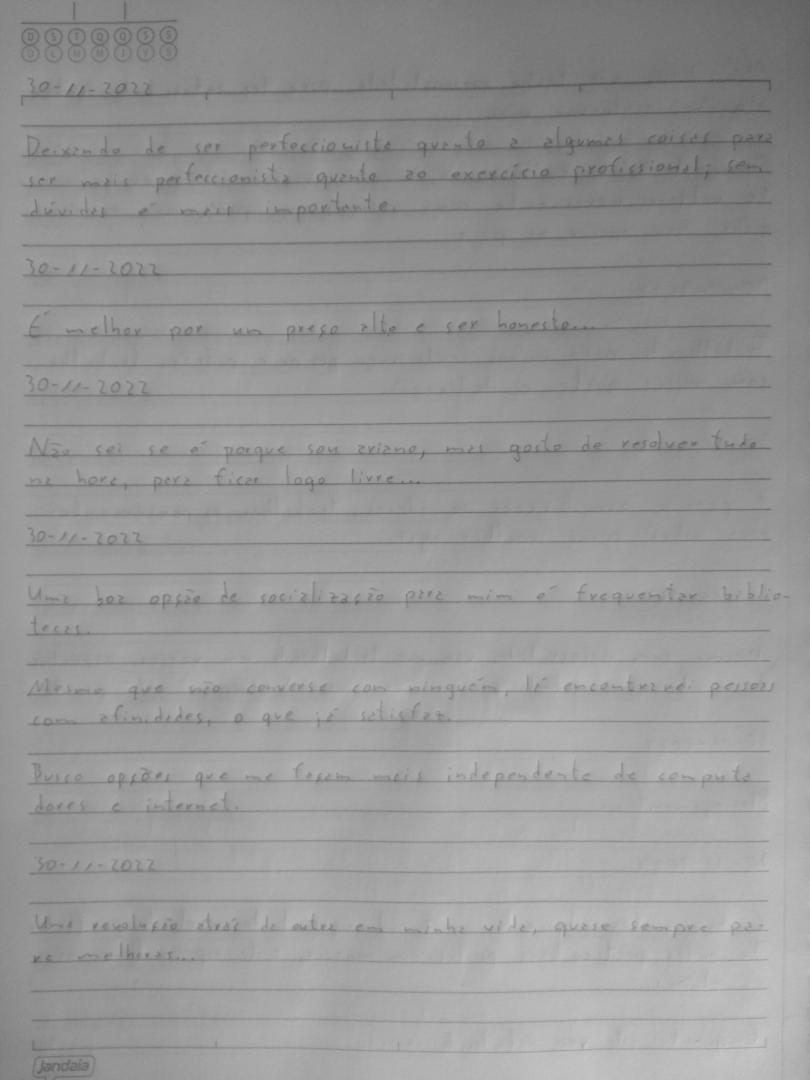 D S T Q Q S S
D L M M J V S
30-11-2022
Deixando de ser perfeccionista quanto a algumas coisas para
ser mais perfeccionista quanto ao exercício profissional; sem
dúvidas é mais importante.
30-11-2022
É melhor por um preço alto e ser honesto...
30-11-2022
Não sei se é porque sou ariano, mas gosto de resolver tudo
na hora, para ficar logo livre...
30-11-2022
Uma boa opção de socialização para mim é frequentar biblio-
tecas.
Mesmo que não converse com ninguém, lá encontrarei pessoas
com afinidades, o que já satisfaz.
Busco opções que me façam mais independente de computa
dores e internet.
30-11-2022
Uma revolução atrás de outra em minha vida, quase sempre pa-
ra melhoras...
jandaia